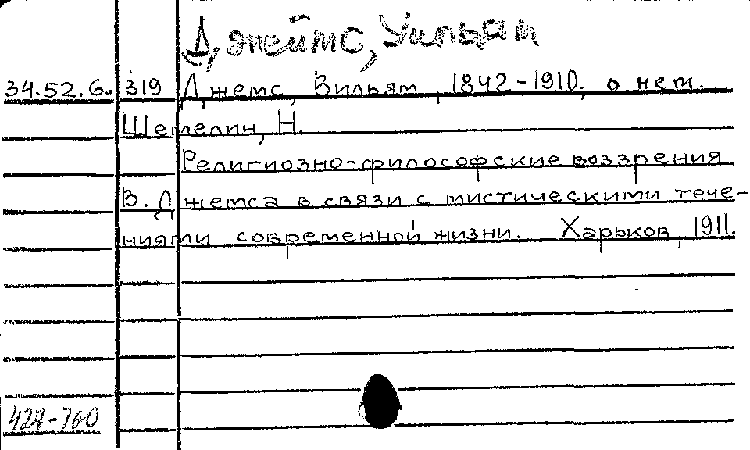 Джеймс, Уильям
34.52.6. 319 Джемс, Вильям, 1842-1910, о нем.
Шемелин, Н.
Религиозно-философские воззрения
В. Джемса в связи с мистическими тече-
ниями современной жизни. Харьков, 1911.
428-760